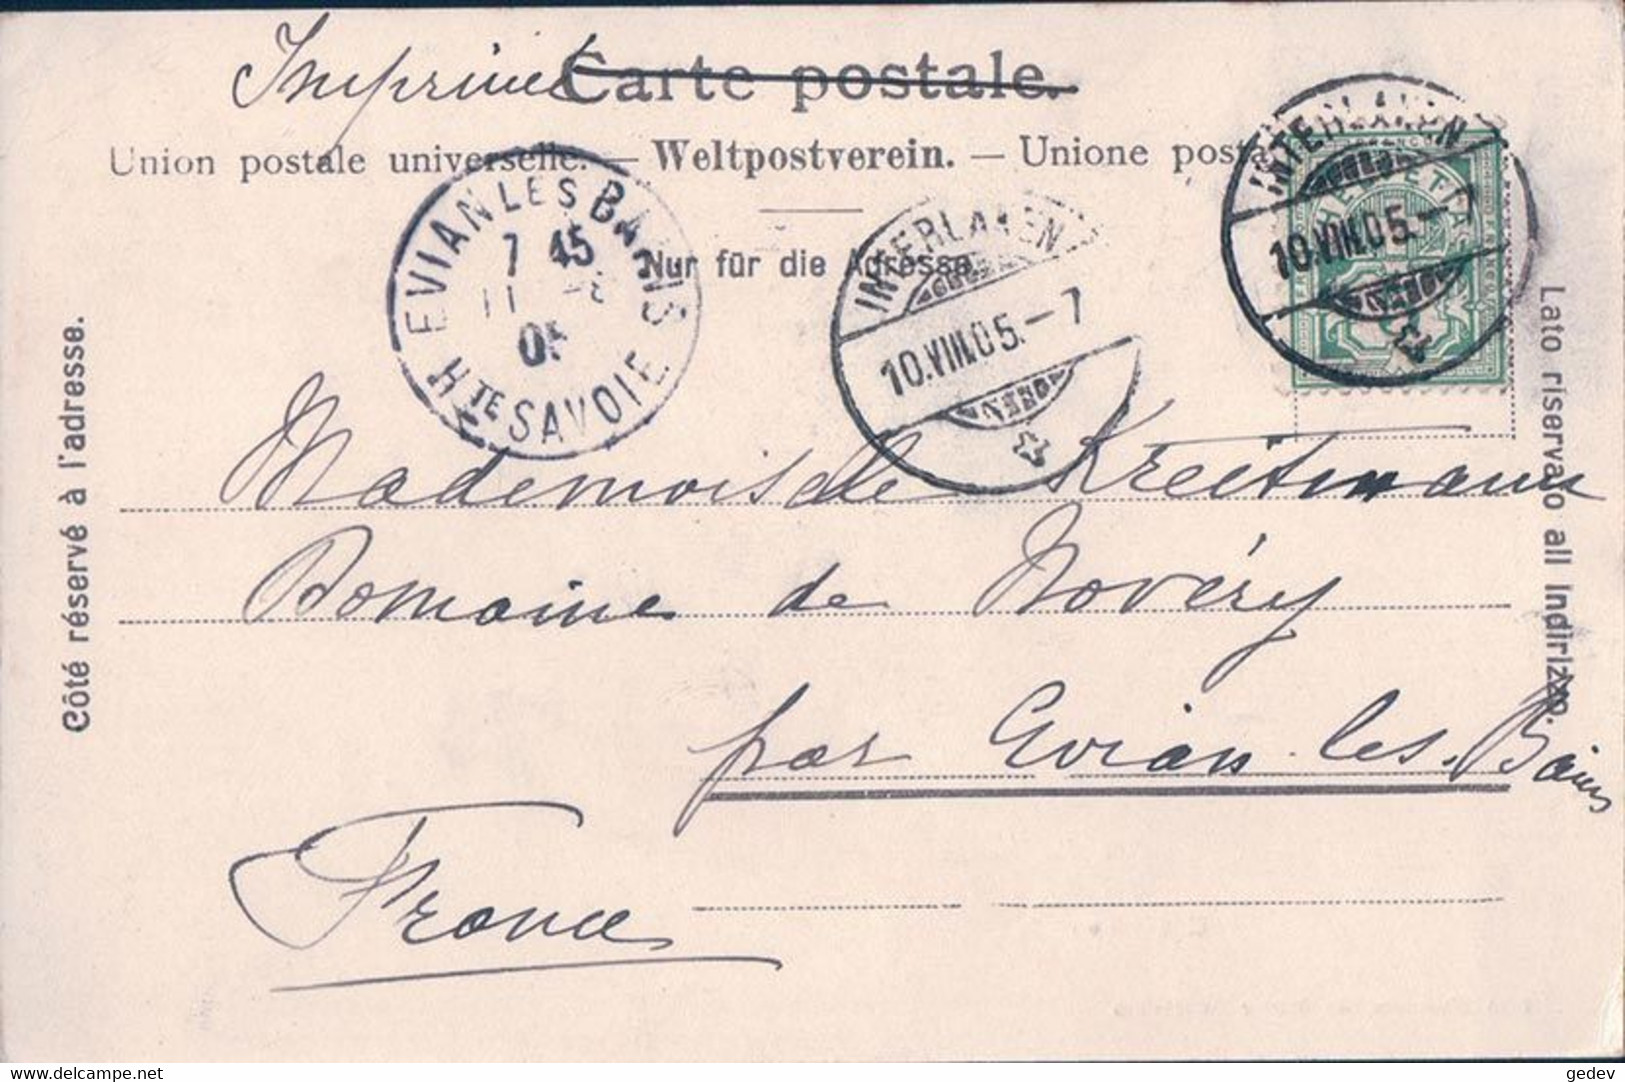 Imprimé Carte postale.
Union postale universelle. — Weltpostverein. — Unione posta
Nur für die Adresse.
EVIAN LES BAINS
7 45
11 -8
05
HTE SAVOIE
INTERLAKEN
10.VIII.05.-7
INTERLAKEN
10.VIII.05.-7
HELVETIA
Côté réservé à l'adresse.
Lato riservato all Indirizzo.
Mademoiselle Kreitmann
Domaine de Novéry
par Evian les Bains
France
gedev
www.delcampe.net